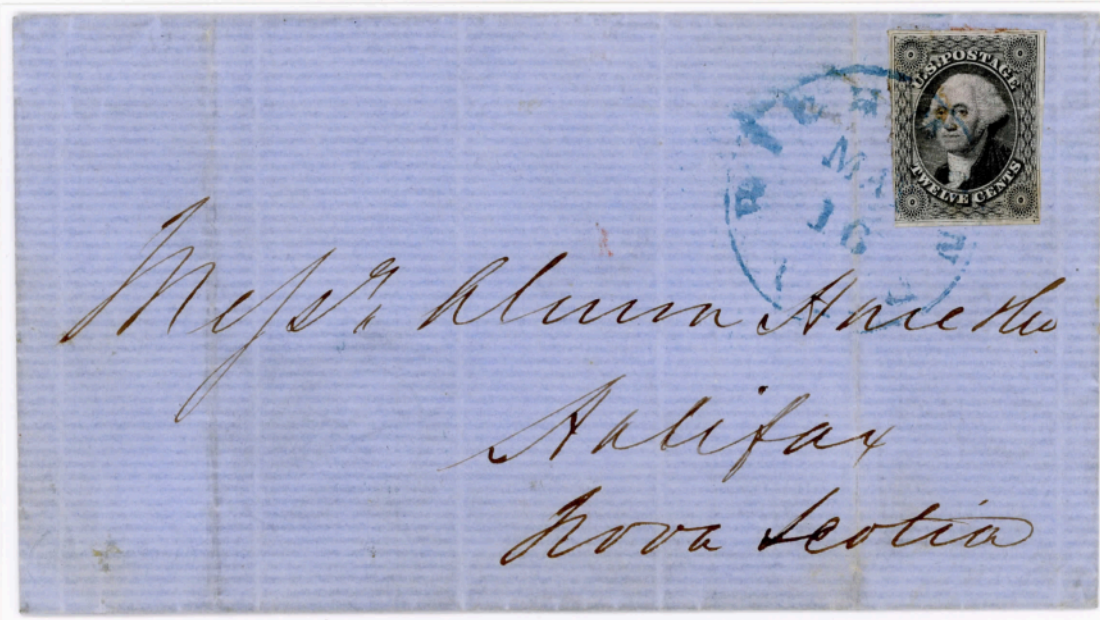 U.S. POSTAGE
TWELVE CENTS
RICHMON
MA
16
Messrs. Almon Hare &co
Halifax
Nova Scotia